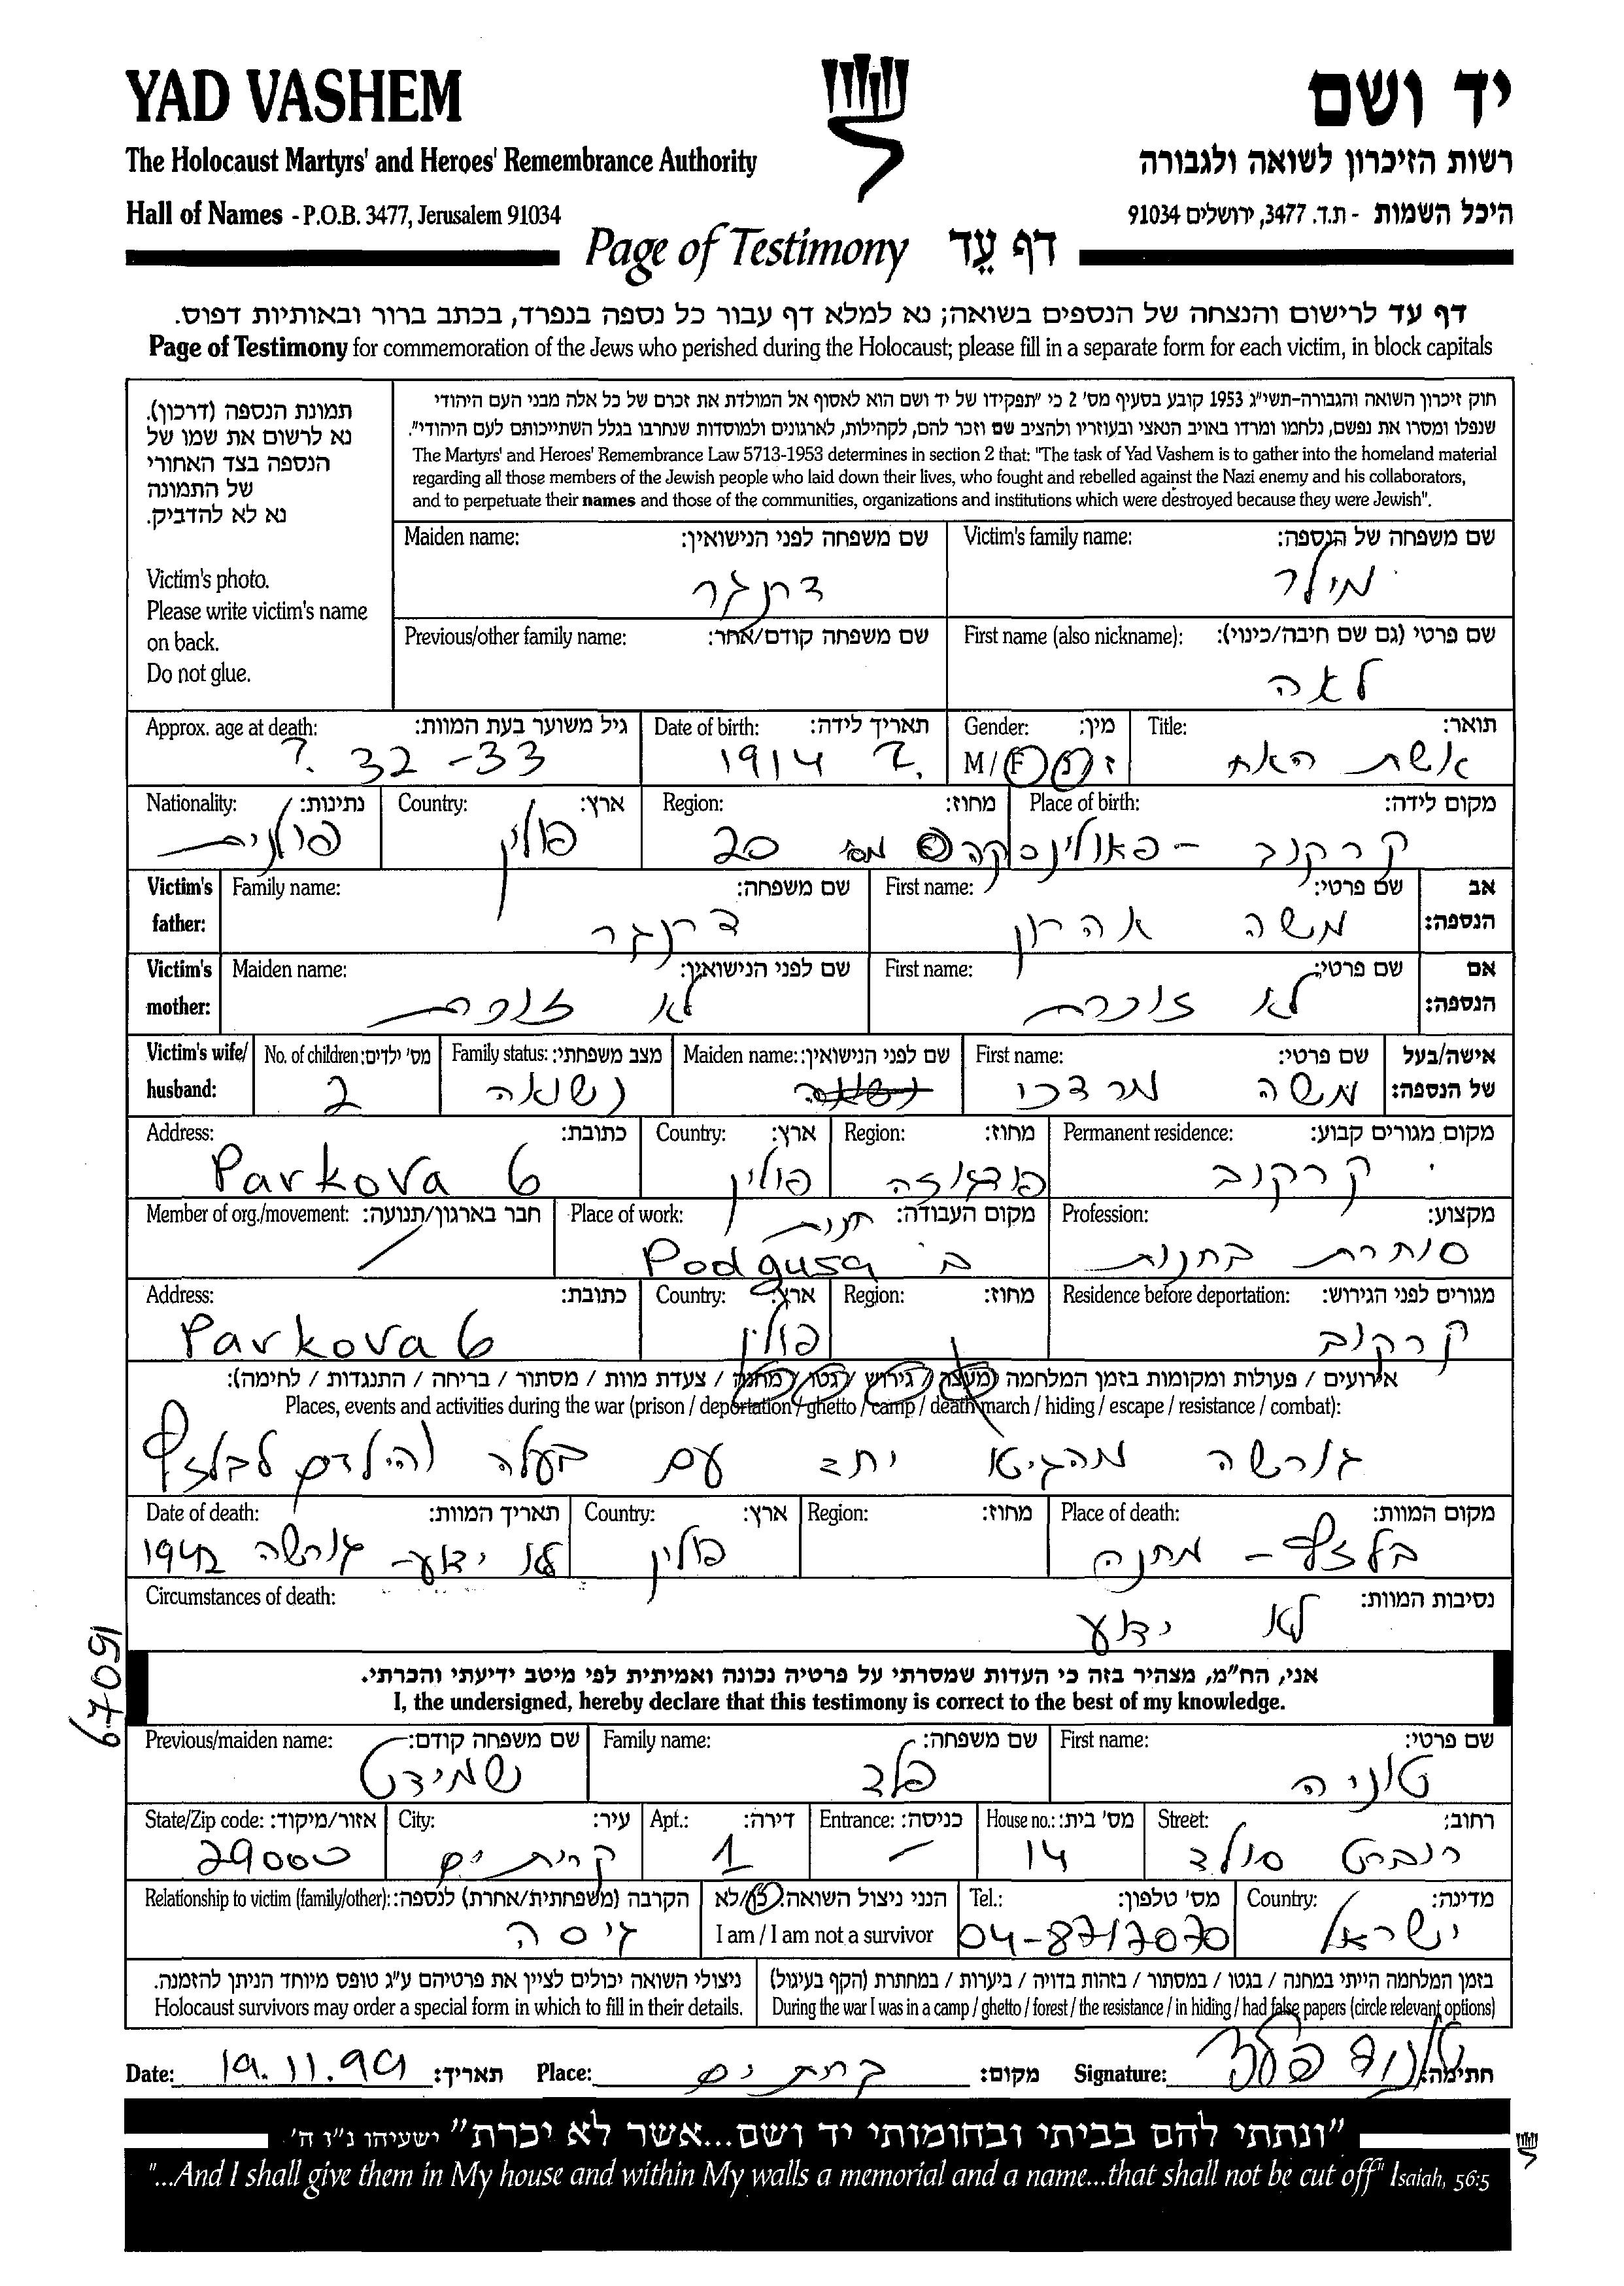 YAD VASHEM
יד ושם
The Holocaust Martyrs' and Heroes' Remembrance Authority
רשות הזיכרון לשואה ולגבורה
Hall of Names - P.O.B. 3477, Jerusalem 91034
היכל השמות - ת.ד. 3477, ירושלים 91034
Page of Testimony דף עֵד
דף עד לרישום והנצחה של הנספים בשואה; נא למלא דף עבור כל נספה בנפרד, בכתב ברור ובאותיות דפוס.
Page of Testimony for commemoration of the Jews who perished during the Holocaust; please fill in a separate form for each victim, in block capitals
תמונת הנספה (דרכון).
נא לרשום את שמו של
הנספה בצד האחורי
של התמונה
נא לא להדביק.
Victim's photo.
Please write victim's name
on back.
Do not glue.
חוק זיכרון השואה והגבורה-תשי"ג 1953 קובע בסעיף מס' 2 כי "תפקידו של יד ושם הוא לאסוף אל המולדת את זכרם של כל אלה מבני העם היהודי
שנפלו ומסרו את נפשם, נלחמו ומרדו באויב הנאצי ובעוזריו ולהציב שם וזכר להם, לקהילות, לארגונים ולמוסדות שנחרבו בגלל השתייכותם לעם היהודי".
The Martyrs' and Heroes' Remembrance Law 5713-1953 determines in section 2 that: "The task of Yad Vashem is to gather into the homeland material
regarding all those members of the Jewish people who laid down their lives, who fought and rebelled against the Nazi enemy and his collaborators,
and to perpetuate their names and those of the communities, organizations and institutions which were destroyed because they were Jewish".
Victim's family name: שם משפחה של הנספה:
מילר
Maiden name: שם משפחה לפני הנישואין:
דמנגר
First name (also nickname): שם פרטי (גם שם חיבה/כינוי):
לאה
Previous/other family name: שם משפחה קודם/אחר:
Title: תואר:
אשת האח
Gender: מין:
M/F ז/נ
Date of birth: תאריך לידה:
1914 ?
Approx. age at death: גיל משוער בעת המוות:
? 32-33
Place of birth: מקום לידה:
קרקוב - פאולינסקה
Region: מחוז:
מס 20
Country: ארץ:
פולין
Nationality: נתינות:
פולנית
Victim's father: אב הנספה:
First name: שם פרטי:
משה אהרון
Family name: שם משפחה:
Victim's mother: אם הנספה:
First name: שם פרטי:
לא זוכרת
Maiden name: שם לפני הנישואין:
לא זוכרת
Victim's wife/husband: אישה/בעל של הנספה:
First name: שם פרטי:
משה מרדכי
Maiden name: שם לפני הנישואין:
Family status: מצב משפחתי:
נשואה
No. of children: מס' ילדים:
2
Permanent residence: מקום מגורים קבוע:
קרקוב
Region: מחוז:
פודגוזה
Country: ארץ:
פולין
Address: כתובת:
Parkova 6
Profession: מקצוע:
סוחרת בחנות
Place of work: מקום העבודה:
חנות
ב Podgusa
Member of org./movement: חבר בארגון/תנועה:
Residence before deportation: מגורים לפני הגירוש:
קרקוב
Region: מחוז:
Country: ארץ:
פולין
Address: כתובת:
Parkova 6
אירועים / פעולות ומקומות בזמן המלחמה (מעצר / גירוש / גטו / מחנה / צעדת מוות / מסתור / בריחה / התנגדות / לחימה):
Places, events and activities during the war (prison / deportation / ghetto / camp / death march / hiding / escape / resistance / combat):
גורשה מהגיטא יחד עם בעלה והילדים לבלזץ
Place of death: מקום המוות:
בלזץ - מחנה
Region: מחוז:
Country: ארץ:
פולין
Date of death: תאריך המוות:
לא ידוע - גורשה ב1942
Circumstances of death: נסיבות המוות:
לא ידוע
6709/
אני, הח"מ, מצהיר בזה כי העדות שמסרתי על פרטיה נכונה ואמיתית לפי מיטב ידיעתי והכרתי.
I, the undersigned, hereby declare that this testimony is correct to the best of my knowledge.
First name: שם פרטי:
טוניה
Family name: שם משפחה:
פלד
Previous/maiden name: שם משפחה קודם:
שמידט
Street: רחוב:
רוברט סולד
House no.: מס' בית:
14
Entrance: כניסה:
-
Apt.: דירה:
1
City: עיר:
קרית ים
State/Zip code: אזור/מיקוד:
29000
Country: מדינה:
ישראל
Tel.: מס' טלפון:
04-8717070
הנני ניצול השואה: כן/לא
I am / I am not a survivor
Relationship to victim (family/other): הקרבה (משפחתית/אחרת) לנספה:
גיסה
בזמן המלחמה הייתי במחנה / בגטו / במסתור / בזהות בדויה / ביערות / במחתרת (הקף בעיגול)
During the war I was in a camp / ghetto / forest / the resistance / in hiding / had false papers (circle relevant options)
ניצולי השואה יכולים לציין את פרטיהם ע"ג טופס מיוחד הניתן להזמנה.
Holocaust survivors may order a special form in which to fill in their details.
Date: 19.11.99 תאריך: Place: קרית ים מקום: Signature: טוניה פלד חתימה:
"ונתתי להם בביתי ובחומותי יד ושם...אשר לא יכרת" ישעיהו נ"ו ה'
"...And I shall give them in My house and within My walls a memorial and a name...that shall not be cut off" Isaiah, 56:5